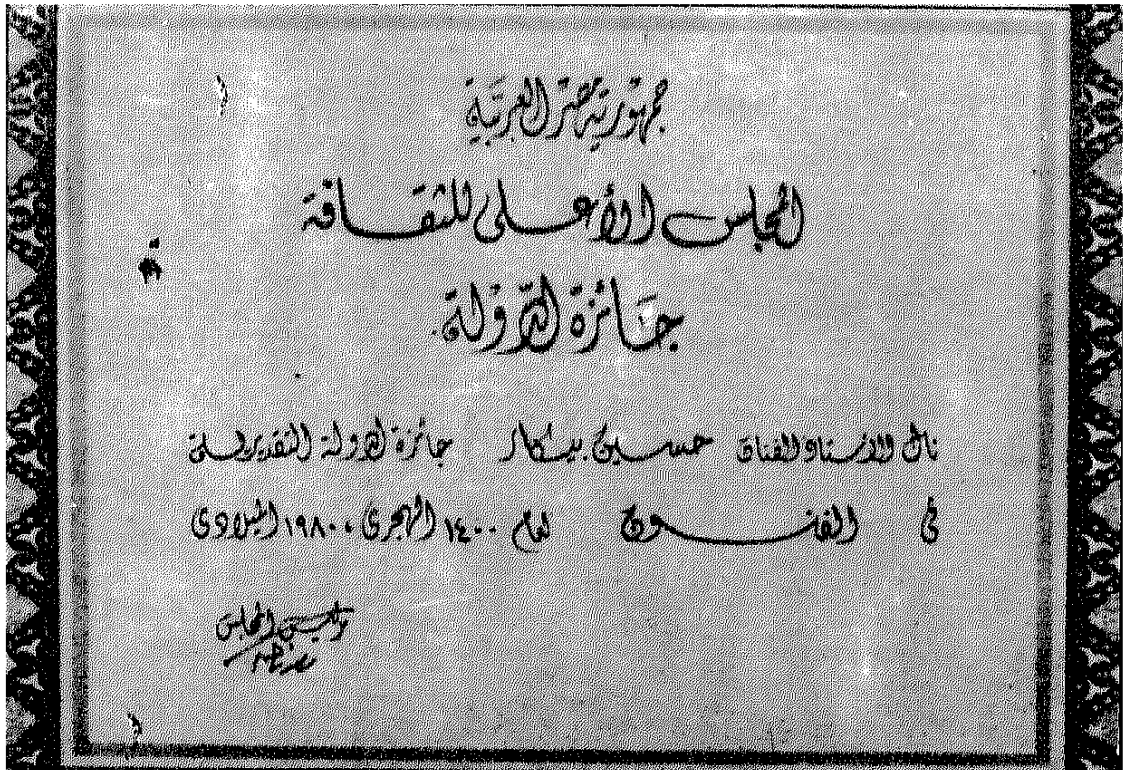 جمهورية مصر العربية
المجلس الأعلى للثقافة
جائزة الدولة
نال الأستاذ الفنان حسين بيكار جائزة الدولة التقديرية
فى الفنون لعام ١٤٠٠ الهجرى ، ١٩٨٠ الميلادى
رئيس المجلس